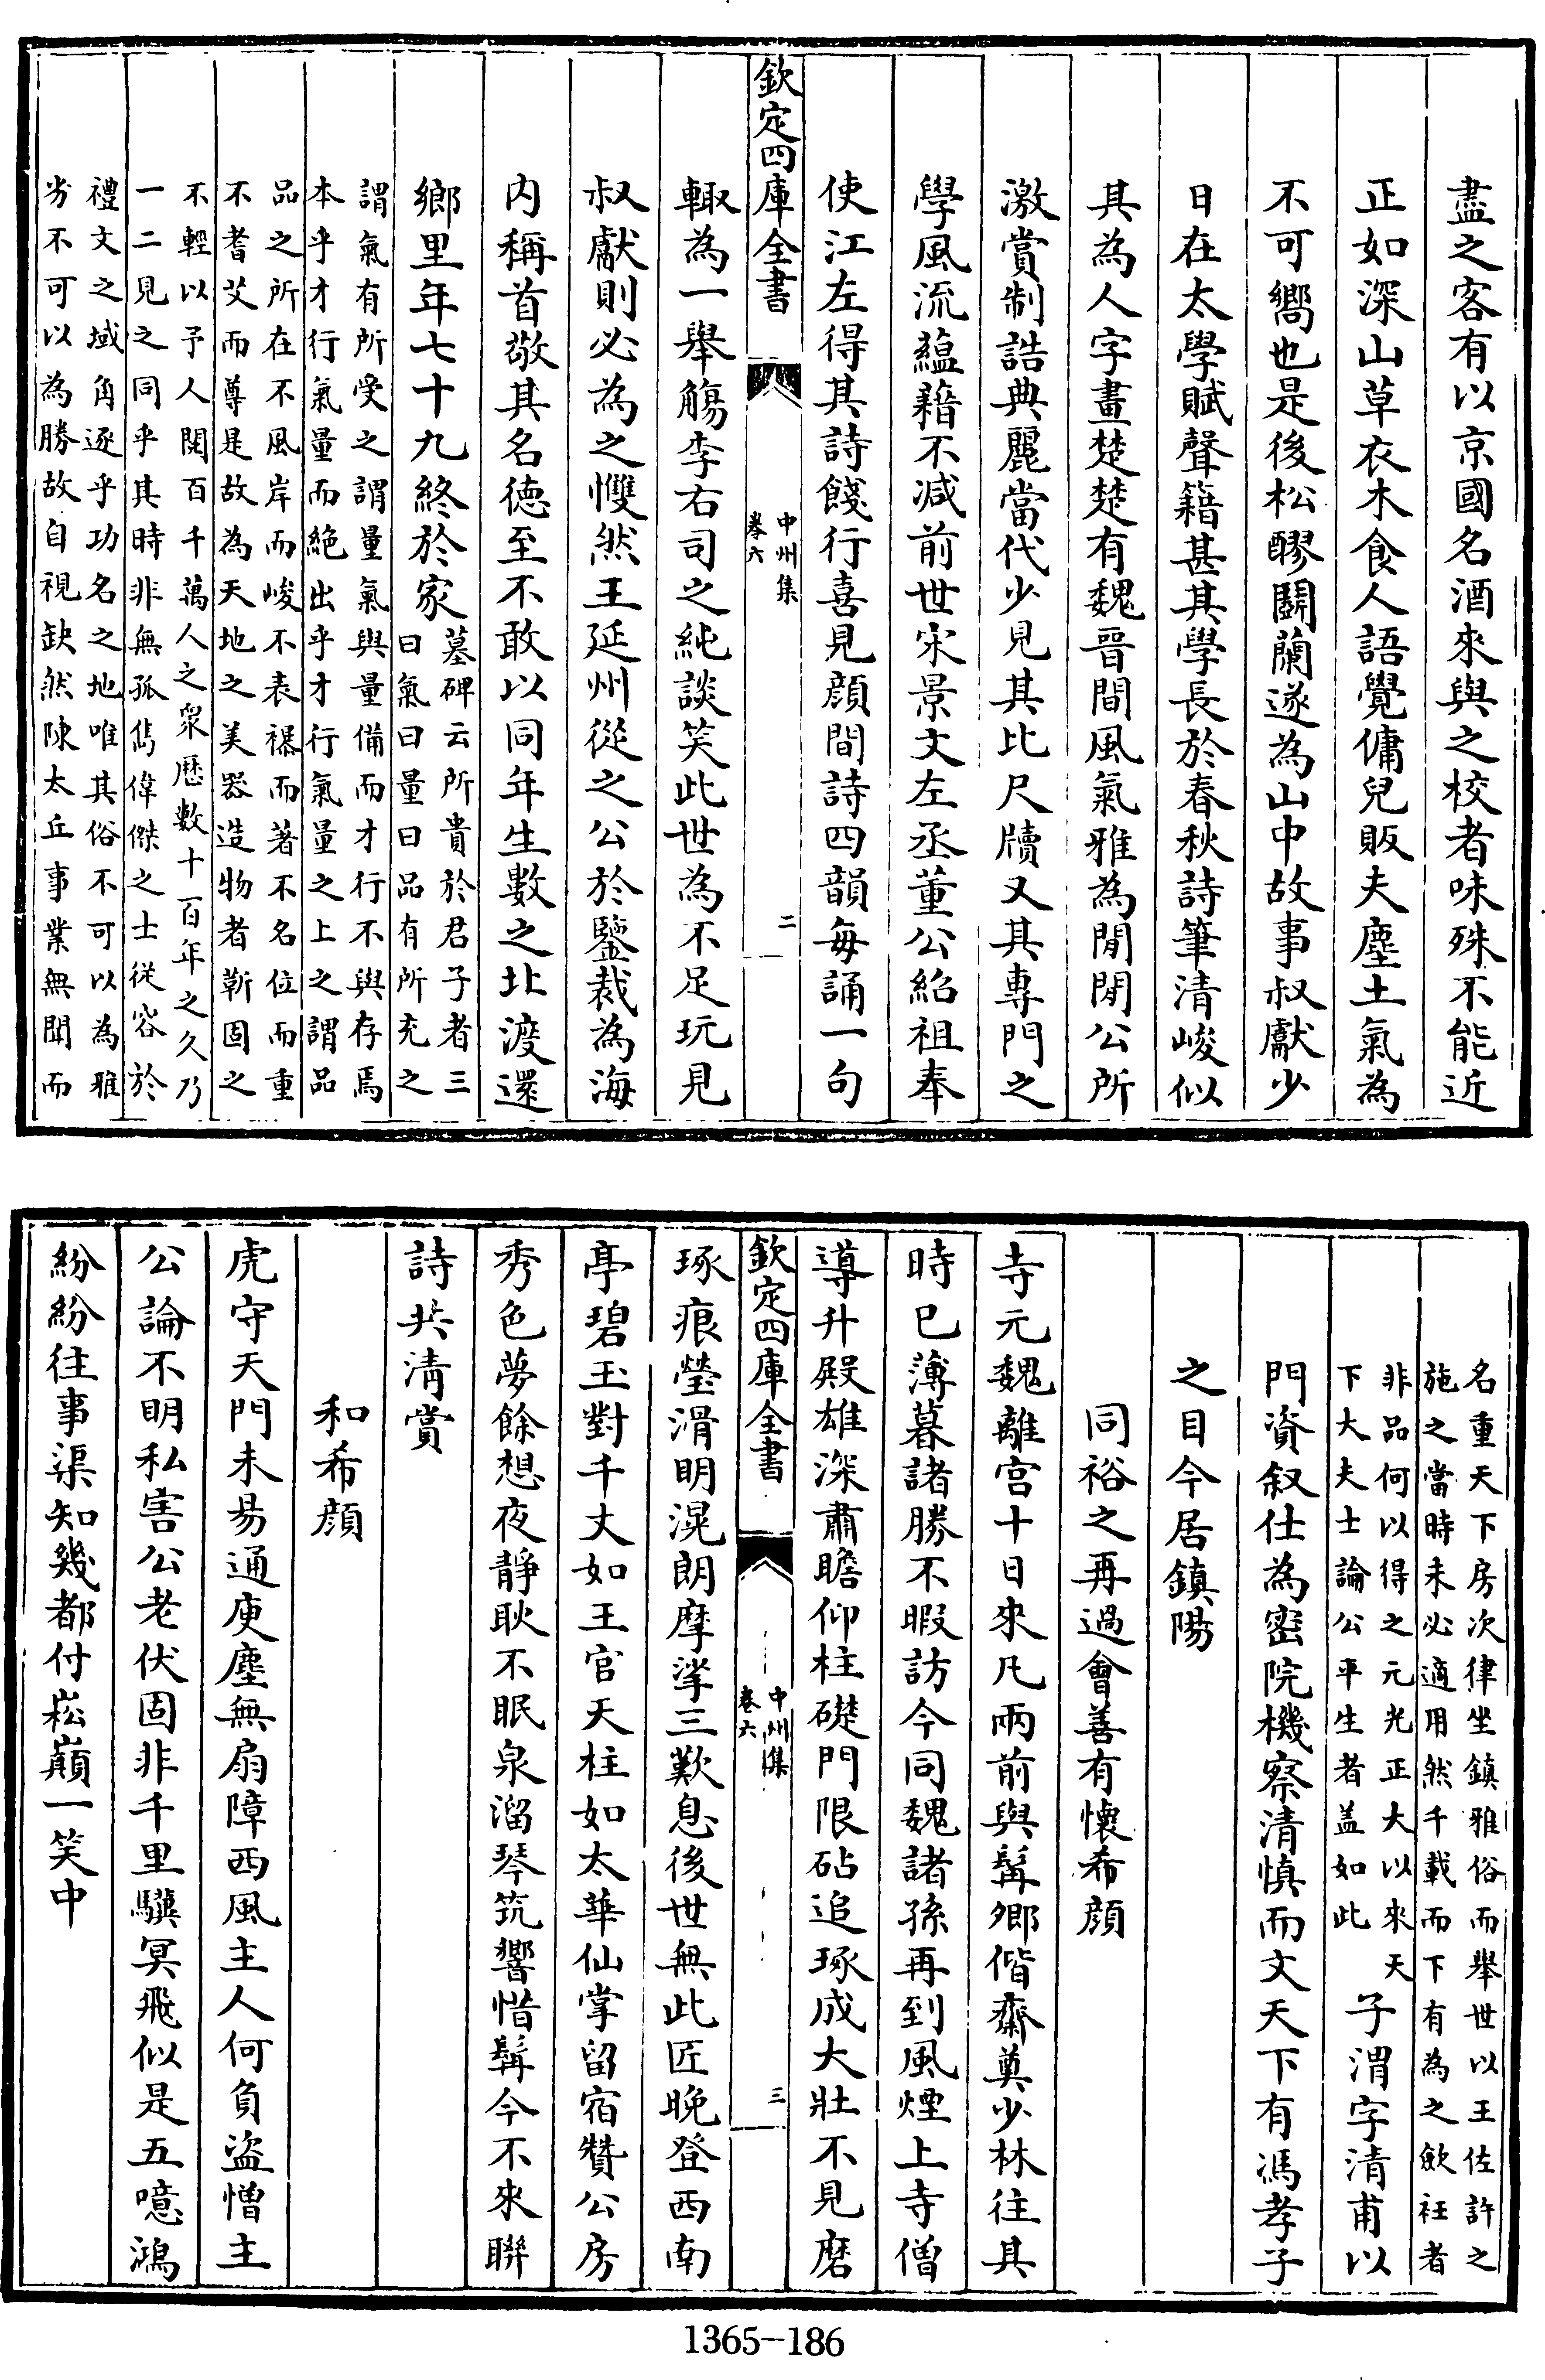 盡之客有以京國名酒來與之校者味殊不能近
正如深山草衣木食人語覺傭兒販夫塵土氣為
不可嚮也是後松醪闘蘭遂為山中故事叔獻少
日在太學賦聲籍甚其學長於春秋詩筆清峻似
其為人字畫楚楚有魏晉間風氣雅為閒閒公所
激賞制誥典麗當代少見其比尺牘又其專門之
學風流藴藉不減前世宋景文左丞董公紹祖奉
使江左得其詩餞行喜見顔間詩四韻每誦一句
欽定四庫全書
中州集
卷六
二
輙為一舉觴李右司之純談笑此世為不足玩見
叔獻則必為之戄然王延州從之公於鑒裁為海
内稱首敬其名德至不敢以同年生數之北渡還
鄉里年七十九終於家
墓碑云所貴於君子者三
曰氣曰量曰品有所充之
謂氣有所受之謂量氣與量備而才行不與存焉
本乎才行氣量而絶出乎才行氣量之上之謂品
品之所在不風岸而峻不表襮而著不名位而重
不耆艾而尊是故為天地之美器造物者靳固之
不輕以予人閱百千萬人之衆歷數十百年之久乃
一二見之同乎其時非無孤雋偉傑之士從容於
禮文之域角逐乎功名之地唯其俗不可以為雅
劣不可以為勝故自視缺然陳太丘事業無聞而
名重天下房次律坐鎮雅俗而舉世以王佐許之
施之當時未必適用然千載而下有為之歛衽者
非品何以得之元光正大以來天
下大夫士論公平生者盖如此
子渭字清甫以
門資叙仕為密院機察清慎而文天下有馮孝子
之目今居鎮陽
同裕之再過會善有懷希顔
寺元魏離宫十日來凡兩前與髯卿偕齋奠少林往其
時已薄暮諸勝不暇訪今同魏諸孫再到風煙上寺僧
導升殿雄深肅瞻仰柱礎門限砧追琢成大壯不見磨
欽定四庫全書
中州集
卷六
三
琢痕瑩滑明滉朗摩挲三歎息後世無此匠晩登西南
亭碧玉對千丈如王官天柱如太華仙掌留宿贊公房
秀色夢餘想夜靜耿不眠泉溜琴筑響惜髯今不來聨
詩共清賞
和希顔
虎守天門未易通庾塵無扇障西風主人何負盗憎主
公論不明私害公老伏固非千里驥冥飛似是五噫鴻
紛紛往事渠知幾都付崧巔一笑中
1365-186